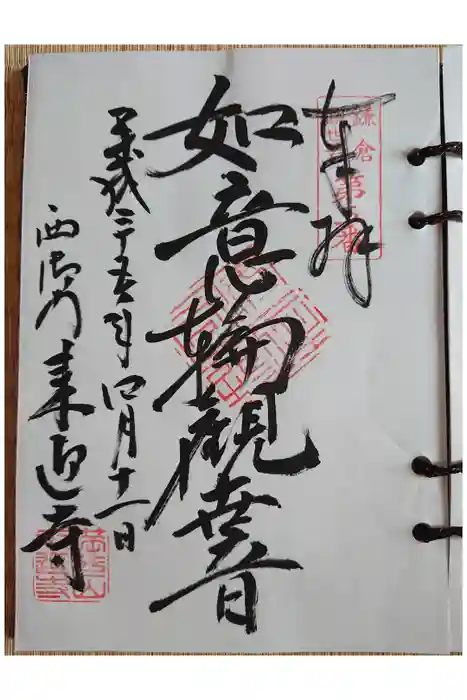 奉拝
鎌倉
第五番
如意輪観世音
平成二十五年四月十一日
西御門 来迎寺